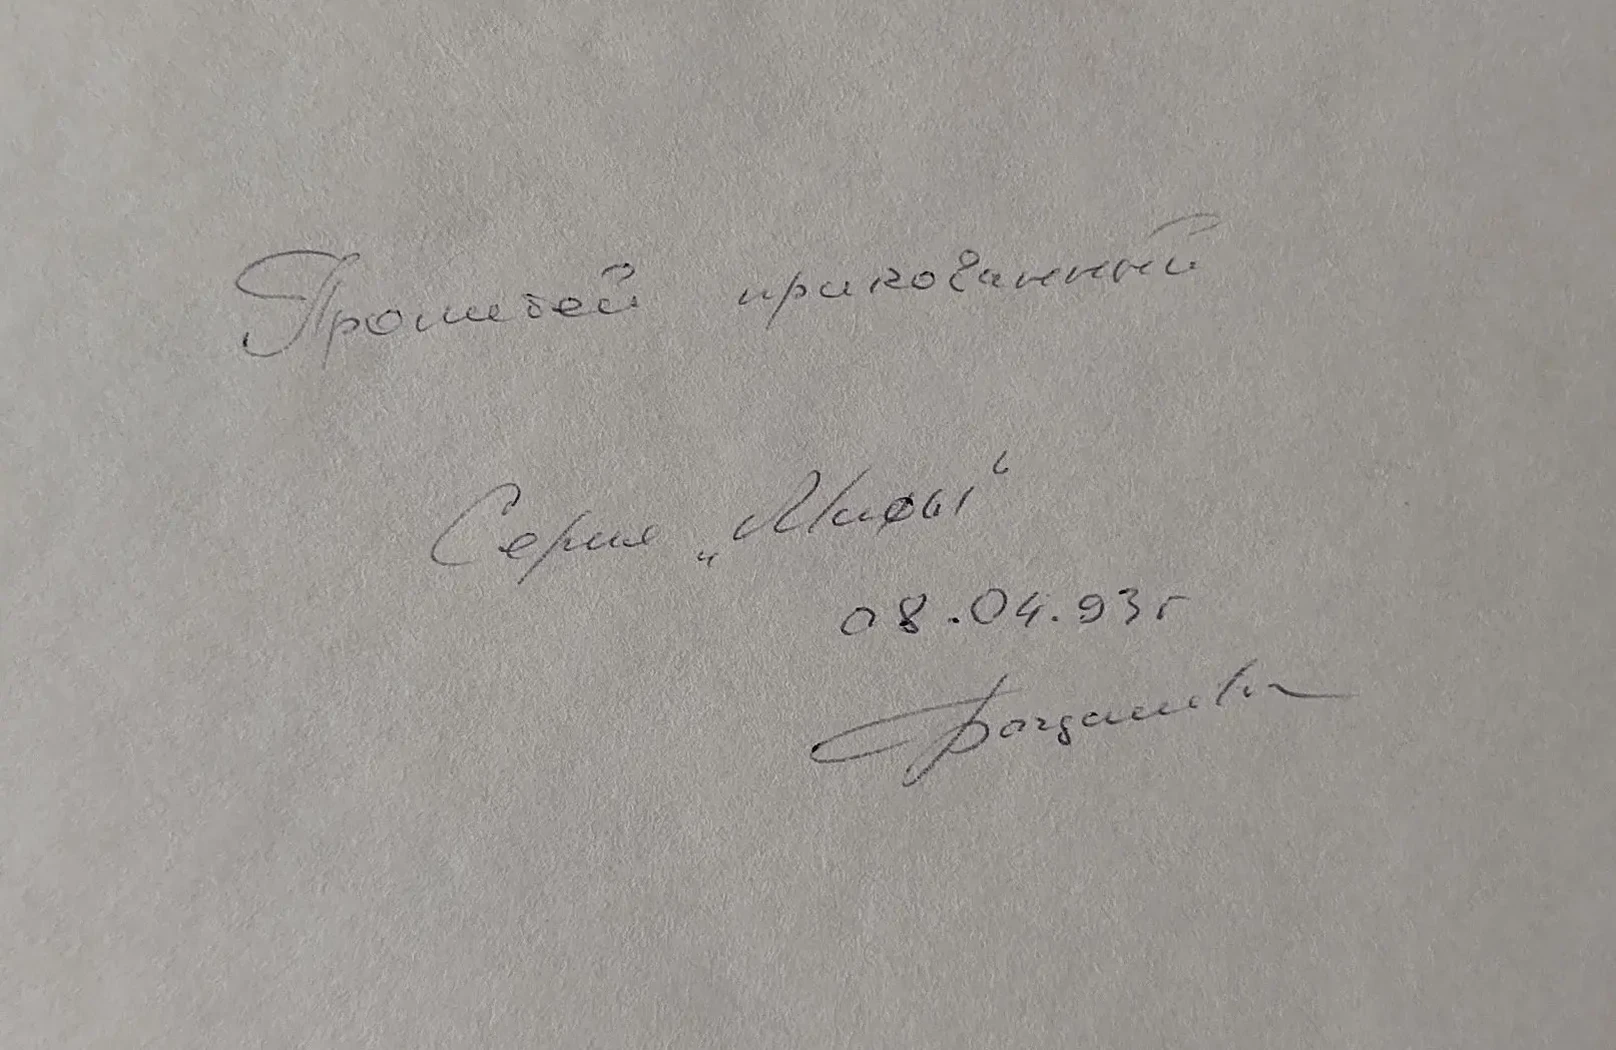 Прометей прикованный
Серия „Мифы“
08.04.93г